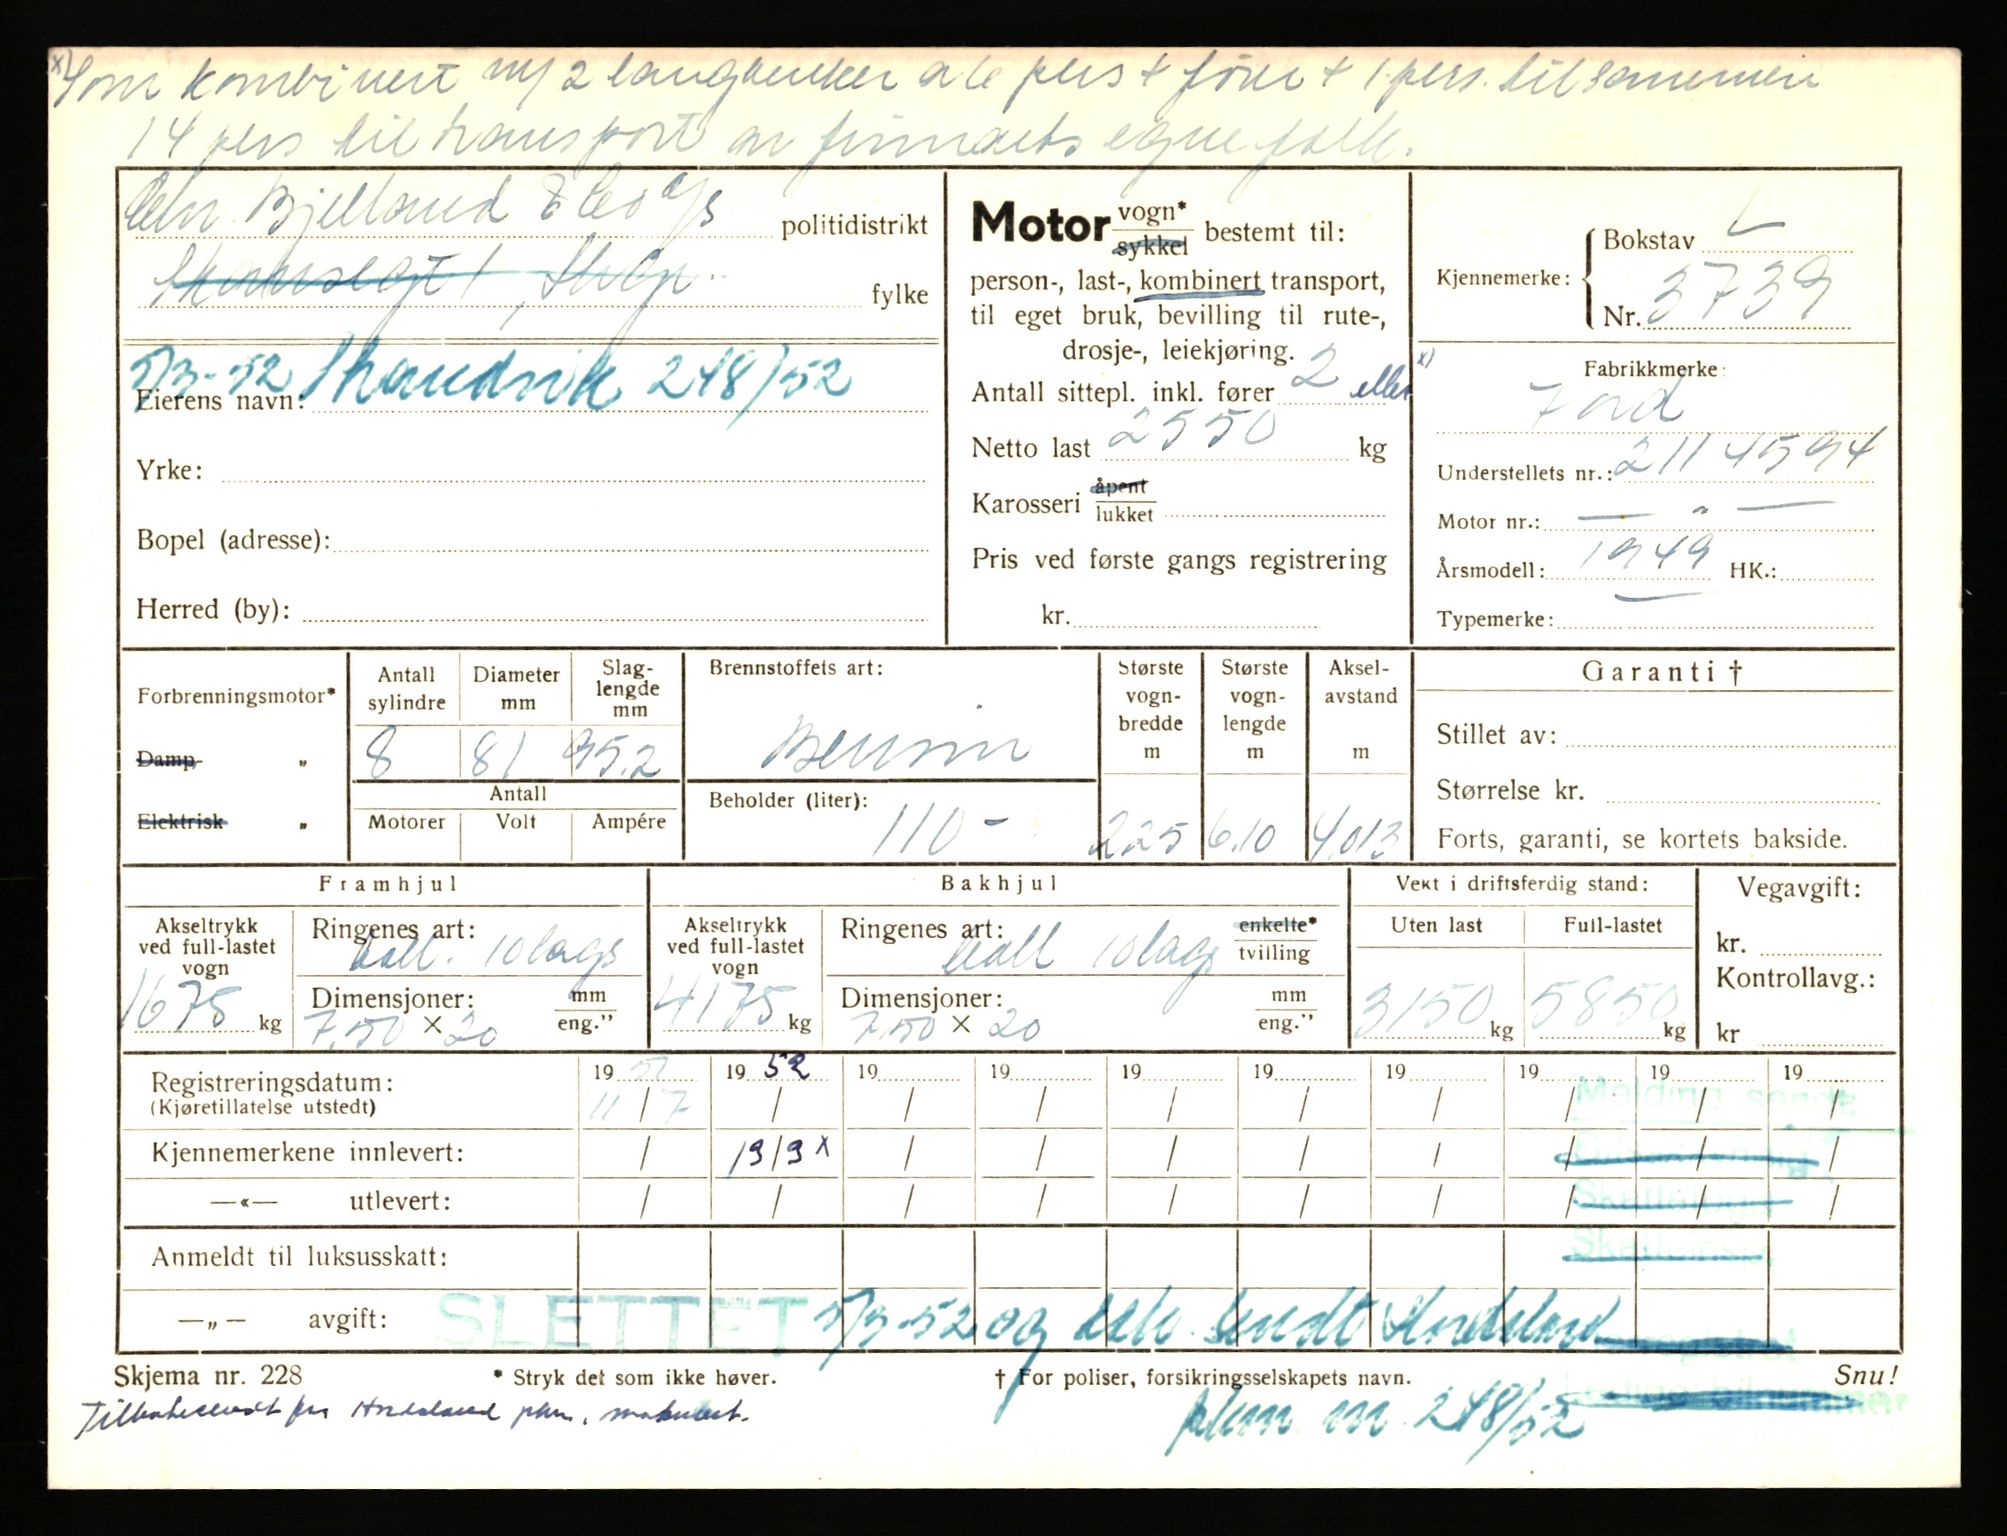 x) Som kombinert m/ 2 langbenker a 6 pers + fører + 1 pers. tilsammen
14 pers til transport av firmaets egne folk.
Chr. Bjelland & Co a/s politidistrikt
fylke
5/3-52 248/52
Eierens navn:
Yrke:
Bopel (adresse):
Herred (by):
Motor vogn* sykkel bestemt til:
person-, last-, kombinert transport,
til eget bruk, bevilling til rute-,
drosje-, leiekjøring.
Antall sittepl. inkl. fører 2 eller x)
Netto last 2550 kg
Karosseri åpent lukket
Pris ved første gangs registrering
kr.
Kjennemerke: Bokstav L
Nr. 3739
Fabrikkmerke:
Ford
Understellets nr.: 2114594
Motor nr.: — " —
Årsmodell: 1949 HK.:
Typemerke:
Forbrenningsmotor*
Damp "
Elektrisk "
Antall sylindre Diameter mm Slag-lengde mm
8 81 95.2
Antall
Motorer Volt Ampére
Brennstoffets art:
Bensin
Beholder (liter): 110 -
Største vogn-bredde m Største vogn-lengde m Aksel-avstand m
2.25 6.10 4.013
Garanti †
Stillet av:
Størrelse kr.
Forts, garanti, se kortets bakside.
Framhjul
Akseltrykk ved full-lastet vogn
1675 kg
Ringenes art: ball. 10 lags
Dimensjoner: mm eng."
7.50 × 20
Bakhjul
Akseltrykk ved full-lastet vogn
4175 kg
Ringenes art: ball 10 lags enkelte* tvilling
Dimensjoner: mm eng."
7.50 × 20
Vekt i driftsferdig stand:
Uten last Full-lastet
3150 kg 5850 kg
Vegavgift:
kr.
Kontrollavg.:
kr
19 51 19 52 19 19 19 19 19 19 19 19
Registreringsdatum:
(Kjøretillatelse utstedt) 11/7 / / / / / / / / /
Kjennemerkene innlevert: / 19/3 x / / / / / / / /
—«— utlevert: / / / / / / / / / /
Melding sendt
Anmeldt til luksusskatt:
—„— avgift:
SLETTET 5/3-52 og sendt Hordaland
Skjema nr. 228 * Stryk det som ikke høver. † For poliser, forsikringsselskapets navn. Snu!
Tilbakesendt fra Hordaland
248/52